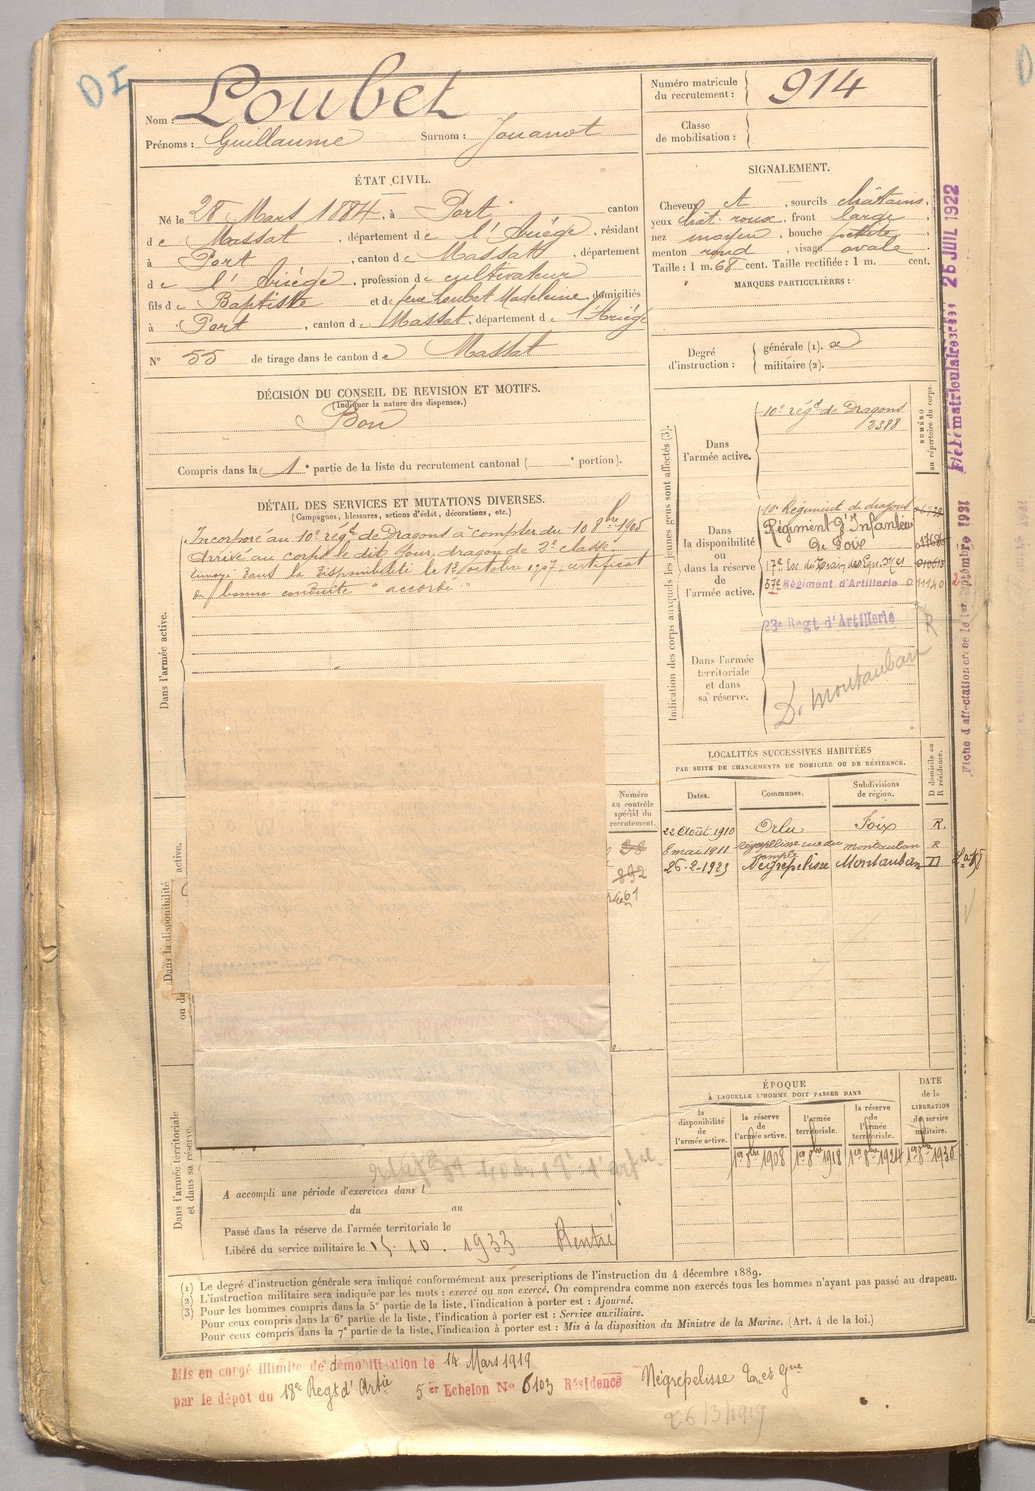 Nom : Loubet
Prénoms : Guillaume Surnom : Jouanot
Numéro matricule du recrutement : 914
Classe de mobilisation :
ÉTAT CIVIL.
Né le 28 Mars 1884, à Port canton
de Massat, département de l'Ariège, résidant
à Port, canton de Massat, département
de l'Ariège, profession de cultivateur
fils de Baptiste et de feue Loubet Madeleine, domiciliés
à Port, canton de Massat, département de l'Ariège
N° 55 de tirage dans le canton de Massat
SIGNALEMENT.
Cheveux ct, sourcils châtains,
yeux chât. roux, front large,
nez moyen, bouche petite,
menton rond, visage ovale
Taille : 1 m. 68 cent. Taille rectifiée : 1 m. cent.
MARQUES PARTICULIÈRES :
Degré d'instruction :
générale (1).
militaire (2).
DÉCISION DU CONSEIL DE REVISION ET MOTIFS.
(Indiquer la nature des dispenses.)
Bon
Compris dans la 1e partie de la liste du recrutement cantonal ( e portion).
DÉTAIL DES SERVICES ET MUTATIONS DIVERSES.
(Campagnes, blessures, actions d'éclat, décorations, etc.)
Incorporé au 10e régt de Dragons à compter du 10 8bre 1905
Arrivé au corps le dit jour, dragon de 2e classe.
Envoyé dans la disponibilité le 12 octobre 1907 certificat
de bonne conduite " accordé "
Dans l'armée active.
Dans la disponibilité
active.
Dans l'armée territoriale et dans sa réserve.
Indication des corps auxquels les jeunes gens sont affectés (3).
NUMÉRO au répertoire du corps.
Dans l'armée active.
10e régt de Dragons
2388
Dans la disponibilité ou dans la réserve de l'armée active.
10e Régiment de dragons
Régiment d'Infanterie
de Foix
17e Esc. du Train des Equ. Mres
57e Régiment d'Artillerie 01140
23e Regt d'Artillerie R
Dans l'armée territoriale et dans sa réserve.
D. Montauban
LOCALITÉS SUCCESSIVES HABITÉES
PAR SUITE DE CHANGEMENTS DE DOMICILE OU DE RÉSIDENCE.
D domicile ou R résidence.
Dates. Communes. Subdivisions de région.
22 Août 1910 Orlu Foix R.
8 mai 1911 Négrepelisse rue du temple Montauban R
26-2-1923 Négrepelisse Montauban D
Numéro au contrôle spécial du recrutement.
892
61
ÉPOQUE
À LAQUELLE L'HOMME DOIT PASSER DANS
DATE de la LIBÉRATION du service militaire.
la disponibilité de l'armée active. la réserve de l'armée active. l'armée territoriale. la réserve de l'armée territoriale.
1er 8bre 1908 1er 8bre 1918 1er 8bre 1924 1er 8bre 1930
A accompli une période d'exercices dans l
du au
Passé dans la réserve de l'armée territoriale le
Libéré du service militaire le 15. 10. 1933 Rentré
(1) Le degré d'instruction générale sera indiqué conformément aux prescriptions de l'instruction du 4 décembre 1889.
(2) L'instruction militaire sera indiquée par les mots : exercé ou non exercé. On comprendra comme non exercés tous les hommes n'ayant pas passé au drapeau.
(3) Pour les hommes compris dans la 5e partie de la liste, l'indication à porter est : Ajourné.
Pour ceux compris dans la 6e partie de la liste, l'indication à porter est : Service auxiliaire.
Pour ceux compris dans la 7e partie de la liste, l'indication à porter est : Mis à la disposition du Ministre de la Marine. (Art. 4 de la loi.)
Mis en congé illimité de démobilisation le 14 Mars 1919
par le dépot du 18e Regt d'Artie 5er Echelon N° 6103 Résidence Négrepelisse Tn et Gne
26/3/1919
Fiche matriculaire créée 26 JUIL 1922
Fiche d'affectation créée le 1er septembre 1931